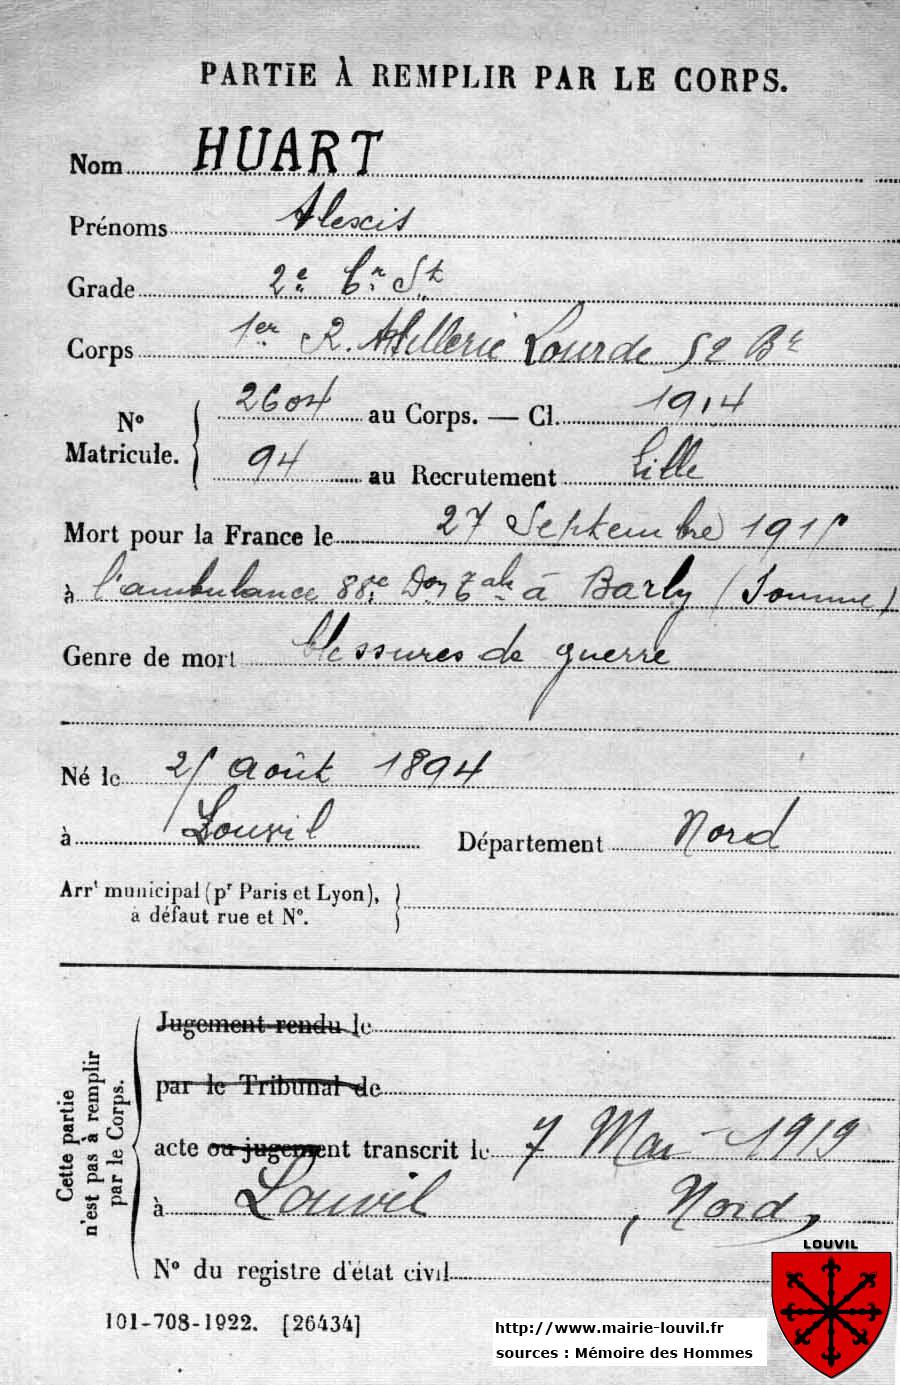 PARTIE À REMPLIR PAR LE CORPS.
Nom HUART
Prénoms Alexis
Grade 2e Cr St
Corps 1er R. Artillerie Lourde 52 Bie
No Matricule. { 2604 au Corps. — Cl. 1914
94 au Recrutement Lille
Mort pour la France le 27 Septembre 1915
à l'ambulance 88e à Barly (Somme)
Genre de mort blessures de guerre
Né le 25 août 1894
à Louvil Département Nord
Arrt municipal (pr Paris et Lyon), à défaut rue et No. }
Cette partie n'est pas à remplir par le Corps.
Jugement rendu le
par le Tribunal de
acte ou jugement transcrit le 7 Mai 1919
à Louvil, Nord,
No du registre d'état civil
101-708-1922. [26434]
LOUVIL
http://www.mairie-louvil.fr
sources : Mémoire des Hommes